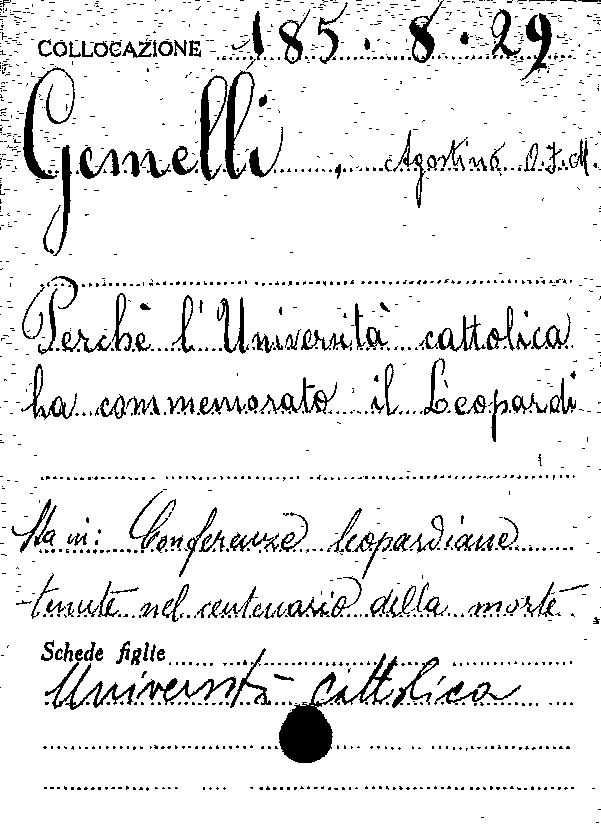 COLLOCAZIONE 185.8.29
Gemelli, Agostino O.F.M.
Perchè l'Università cattolica
ha commemorato il Leopardi
Sta in: Conferenze leopardiane
tenute nel centenario della morte
Schede figlie
Università cattolica